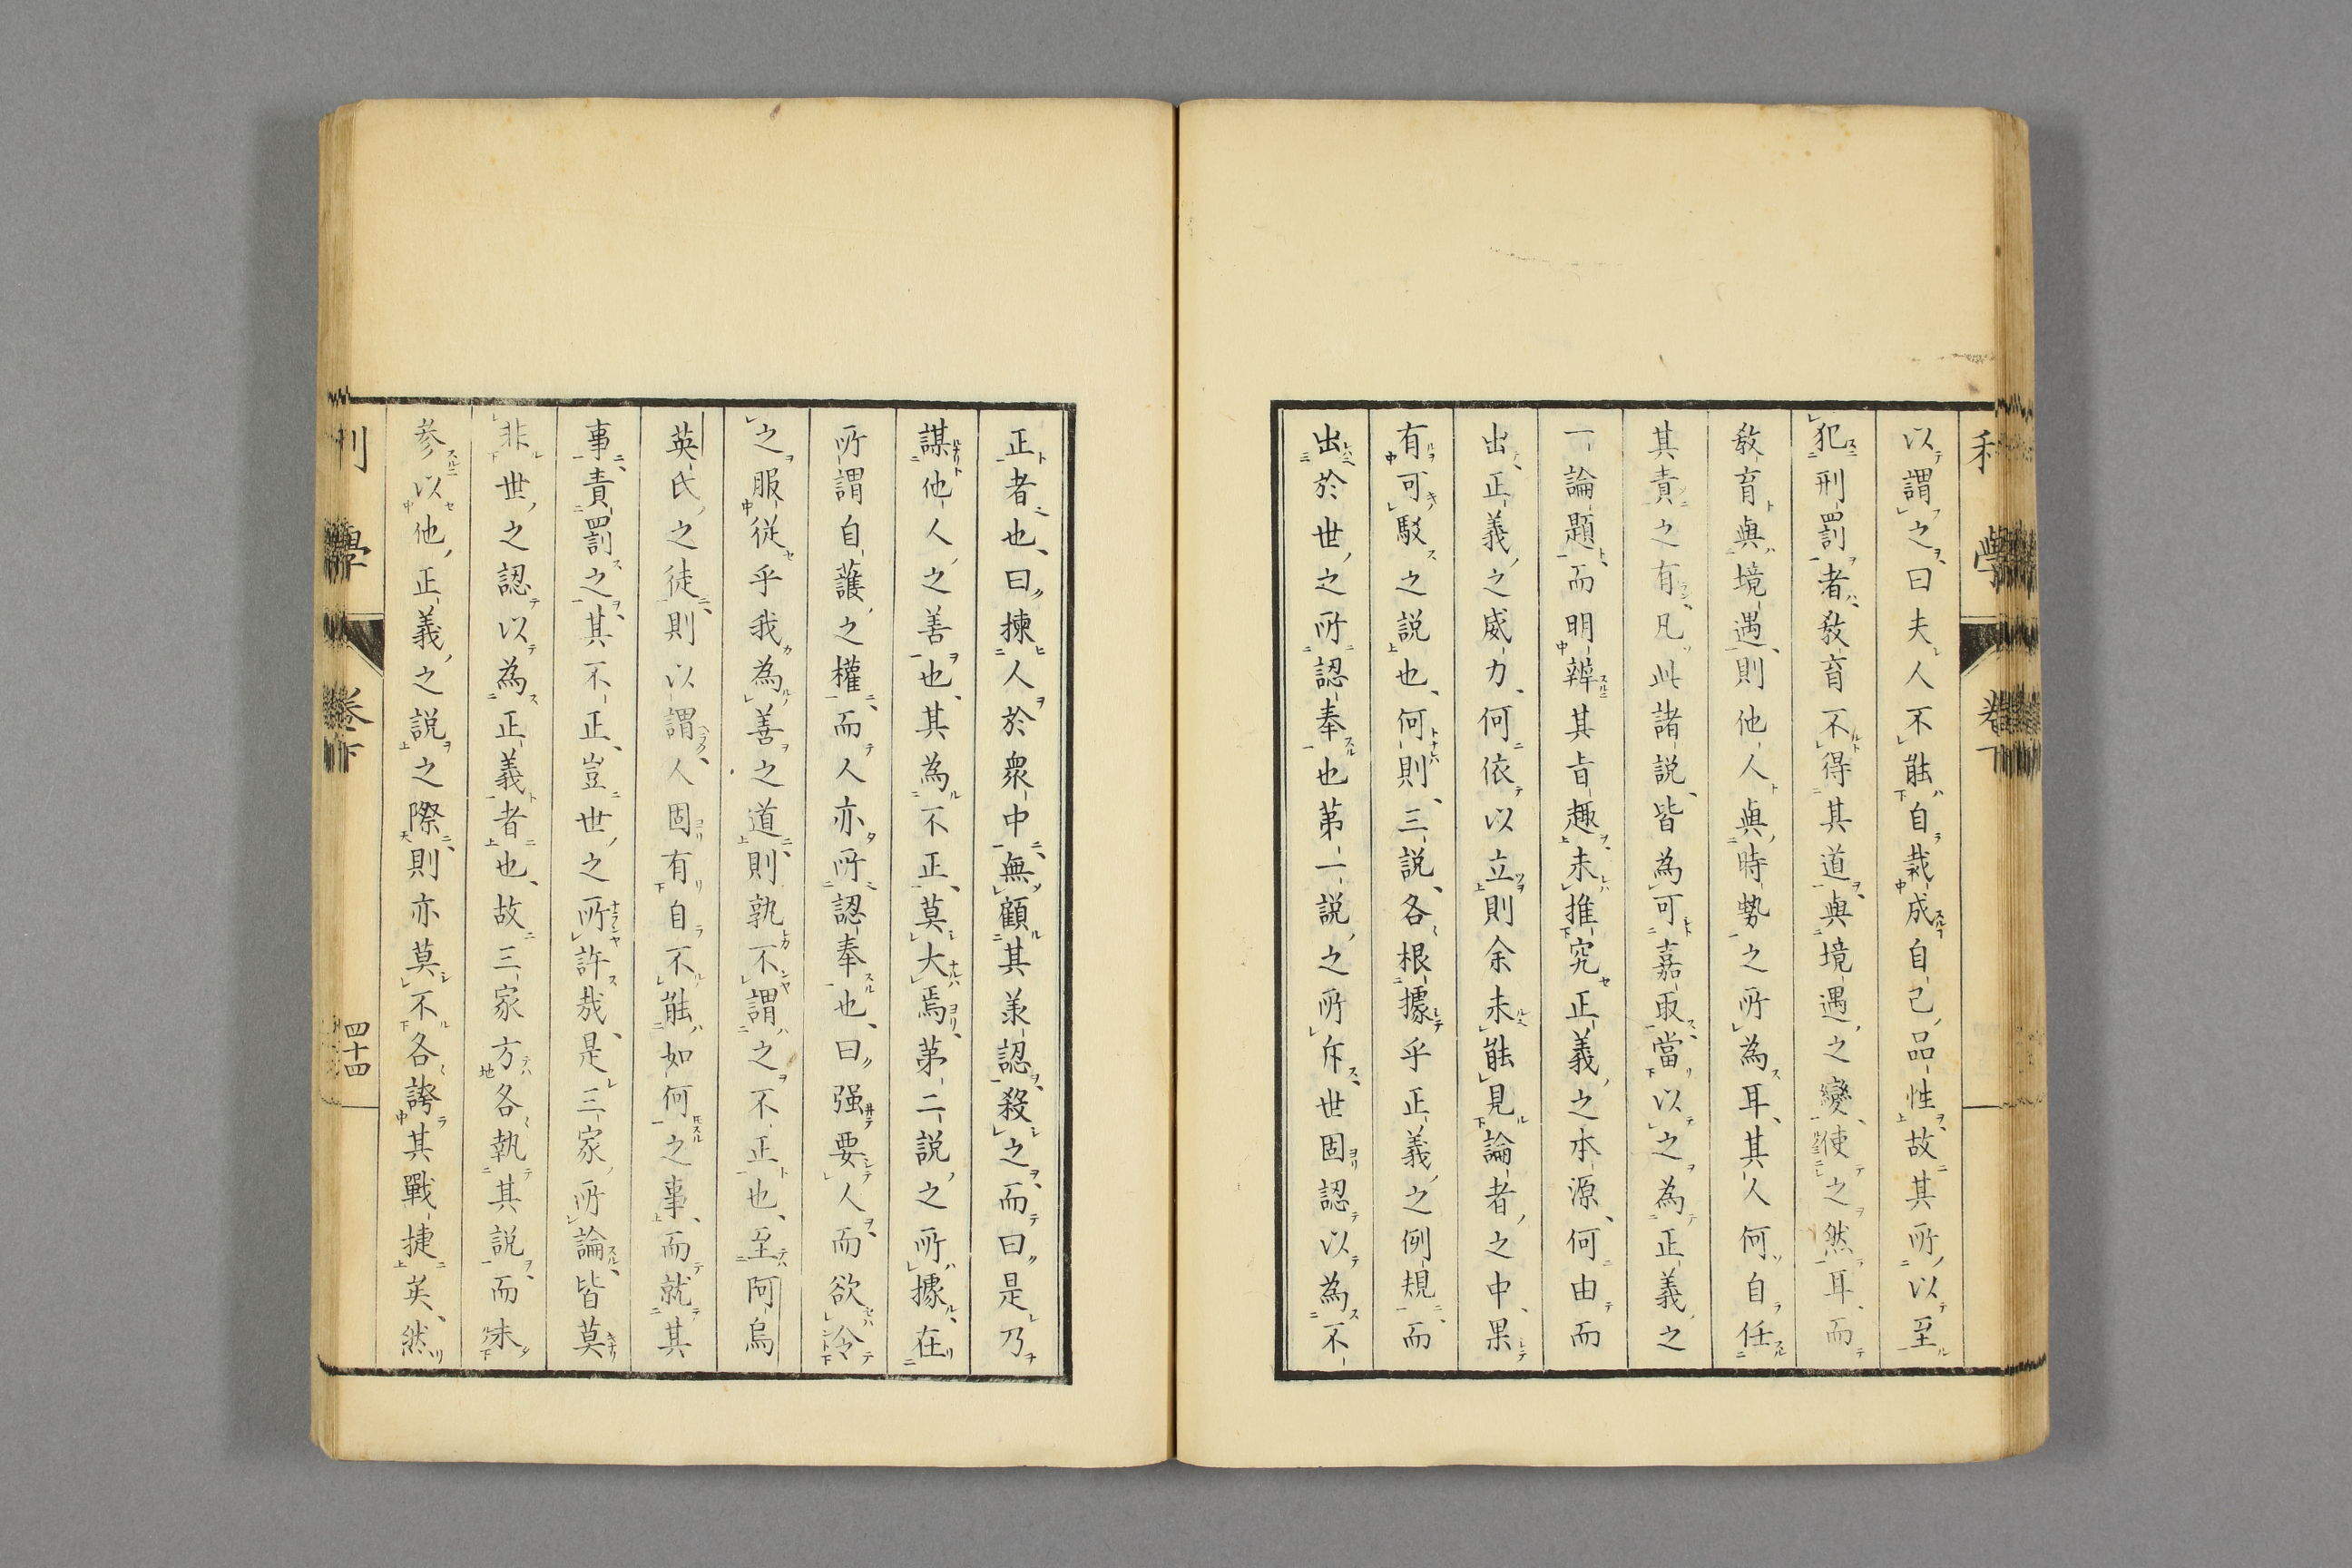 以謂之曰夫人不能自裁成自己品性故其所以至
犯刑罰者教育不得其道與境遇之變使之然耳而
教育與境遇則他人與時勢之所為耳其人何自任
其責之有凡此諸説皆為可嘉取當以之為正義之
一論題而明辨其旨趣未推究正義之本源何由而
出正義之威力何依以立則余未能見論者之中果
有可駁之説也何則三説各根據乎正義之例規而
出於世之所認奉也第一説之所斥世固認以為不
正者也曰揀人於衆中無顧其承認殺之而曰是乃
謀他人之善也其為不正莫大焉第二説之所據在
所謂自護之權而人亦所認奉也曰强要人而欲令
之服從乎我為善之道則孰不謂之不正也至阿烏
英氏之徒則以謂人固有自不能如何之事而就其
事責罰之其不正豈世之所許哉是三家所論皆莫
非世之認以為正義者也故三家方各執其説而未
參以他正義之説之際則亦莫不各誇其戰捷矣然
刑學 卷下 四十四